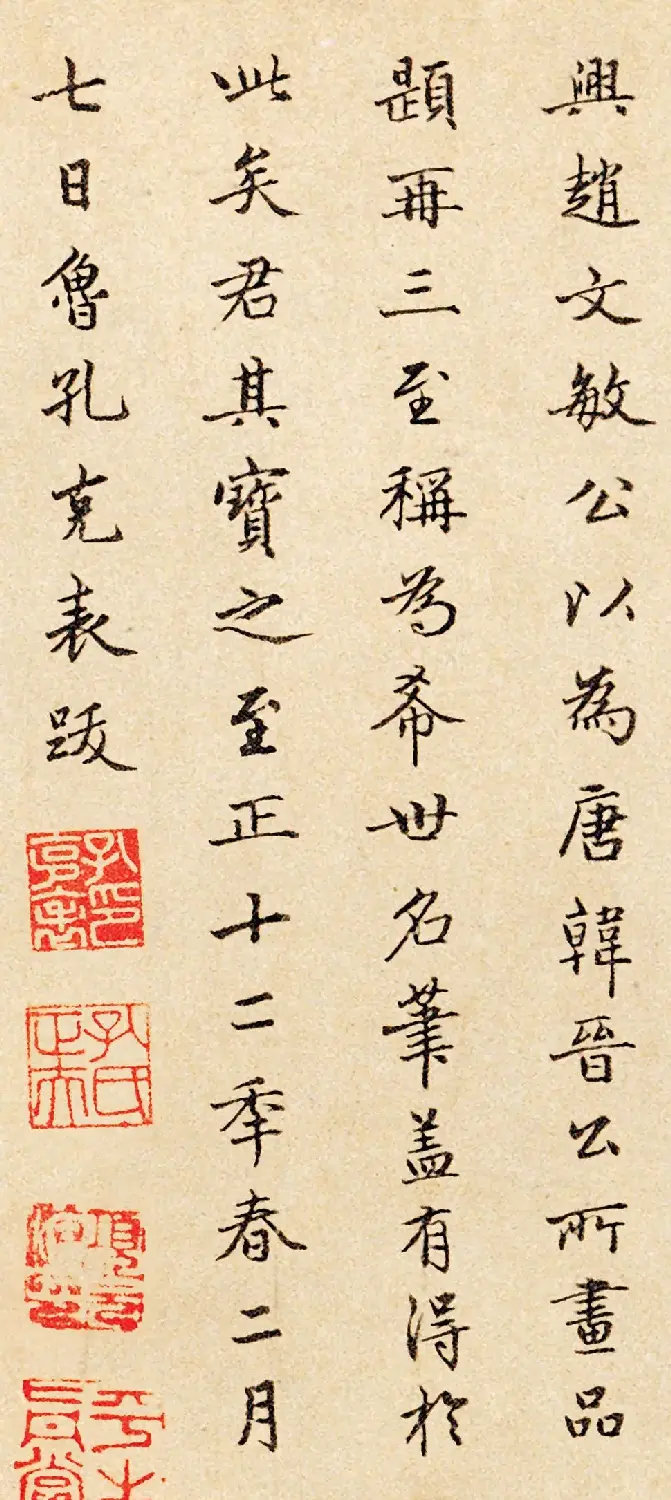 興趙文敏公以為唐韓晉公所畫品
題再三至稱為希世名筆蓋有得於
此矣君其寶之至正十二年春二月
七日魯孔克表跋